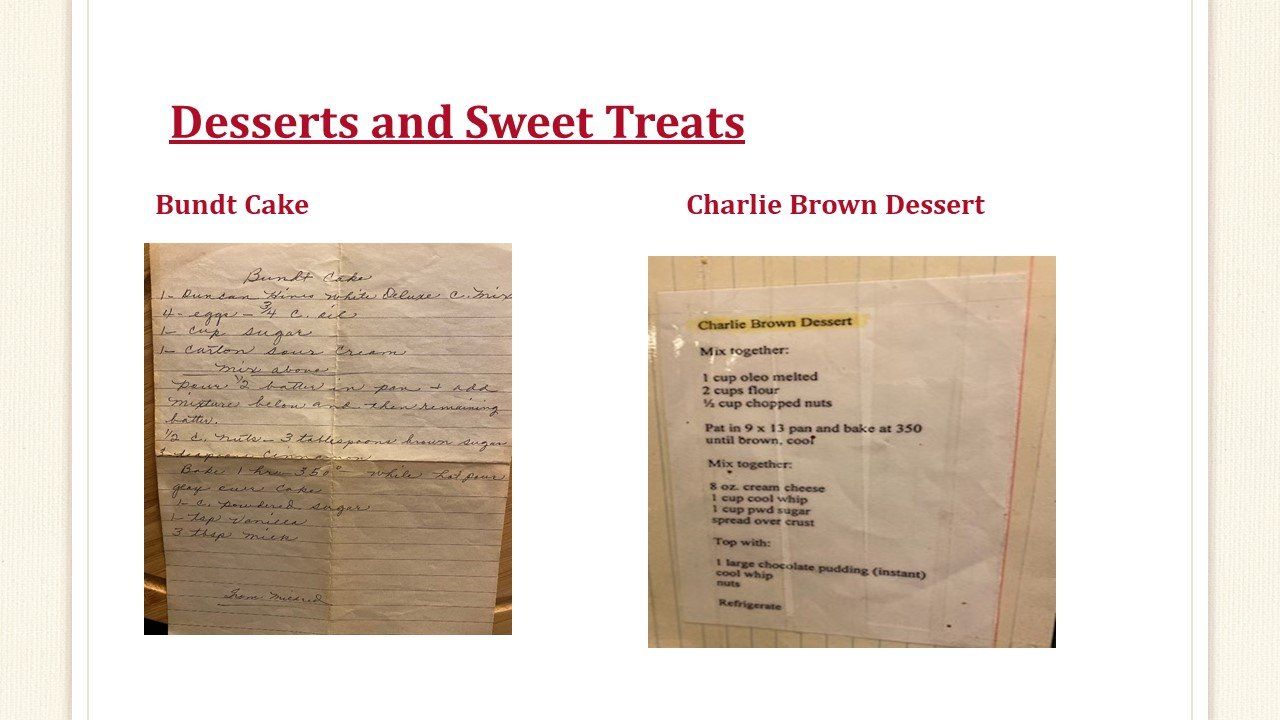 Desserts and Sweet Treats
Bundt Cake
Bundt Cake
1- Duncan Hines White Deluxe C. Mix
4- eggs - 3/4 C. oil
1- cup sugar
1- carton sour cream
mix above
pour 1/2 batter in pan + add
mixture below and then remaining
batter.
1/2 c. nuts - 3 tablespoons brown sugar
teaspoons cinnamon
Bake 1 hr 350° - while hot pour
glay over cake
1- c. powdered sugar
1- tsp vanilla
3 tbsp milk
From Mildred
Charlie Brown Dessert
Charlie Brown Dessert
Mix together:
1 cup oleo melted
2 cups flour
½ cup chopped nuts
Pat in 9 x 13 pan and bake at 350
until brown, cool
Mix together:
8 oz. cream cheese
1 cup cool whip
1 cup pwd sugar
spread over crust
Top with:
1 large chocolate pudding (instant)
cool whip
nuts
Refrigerate